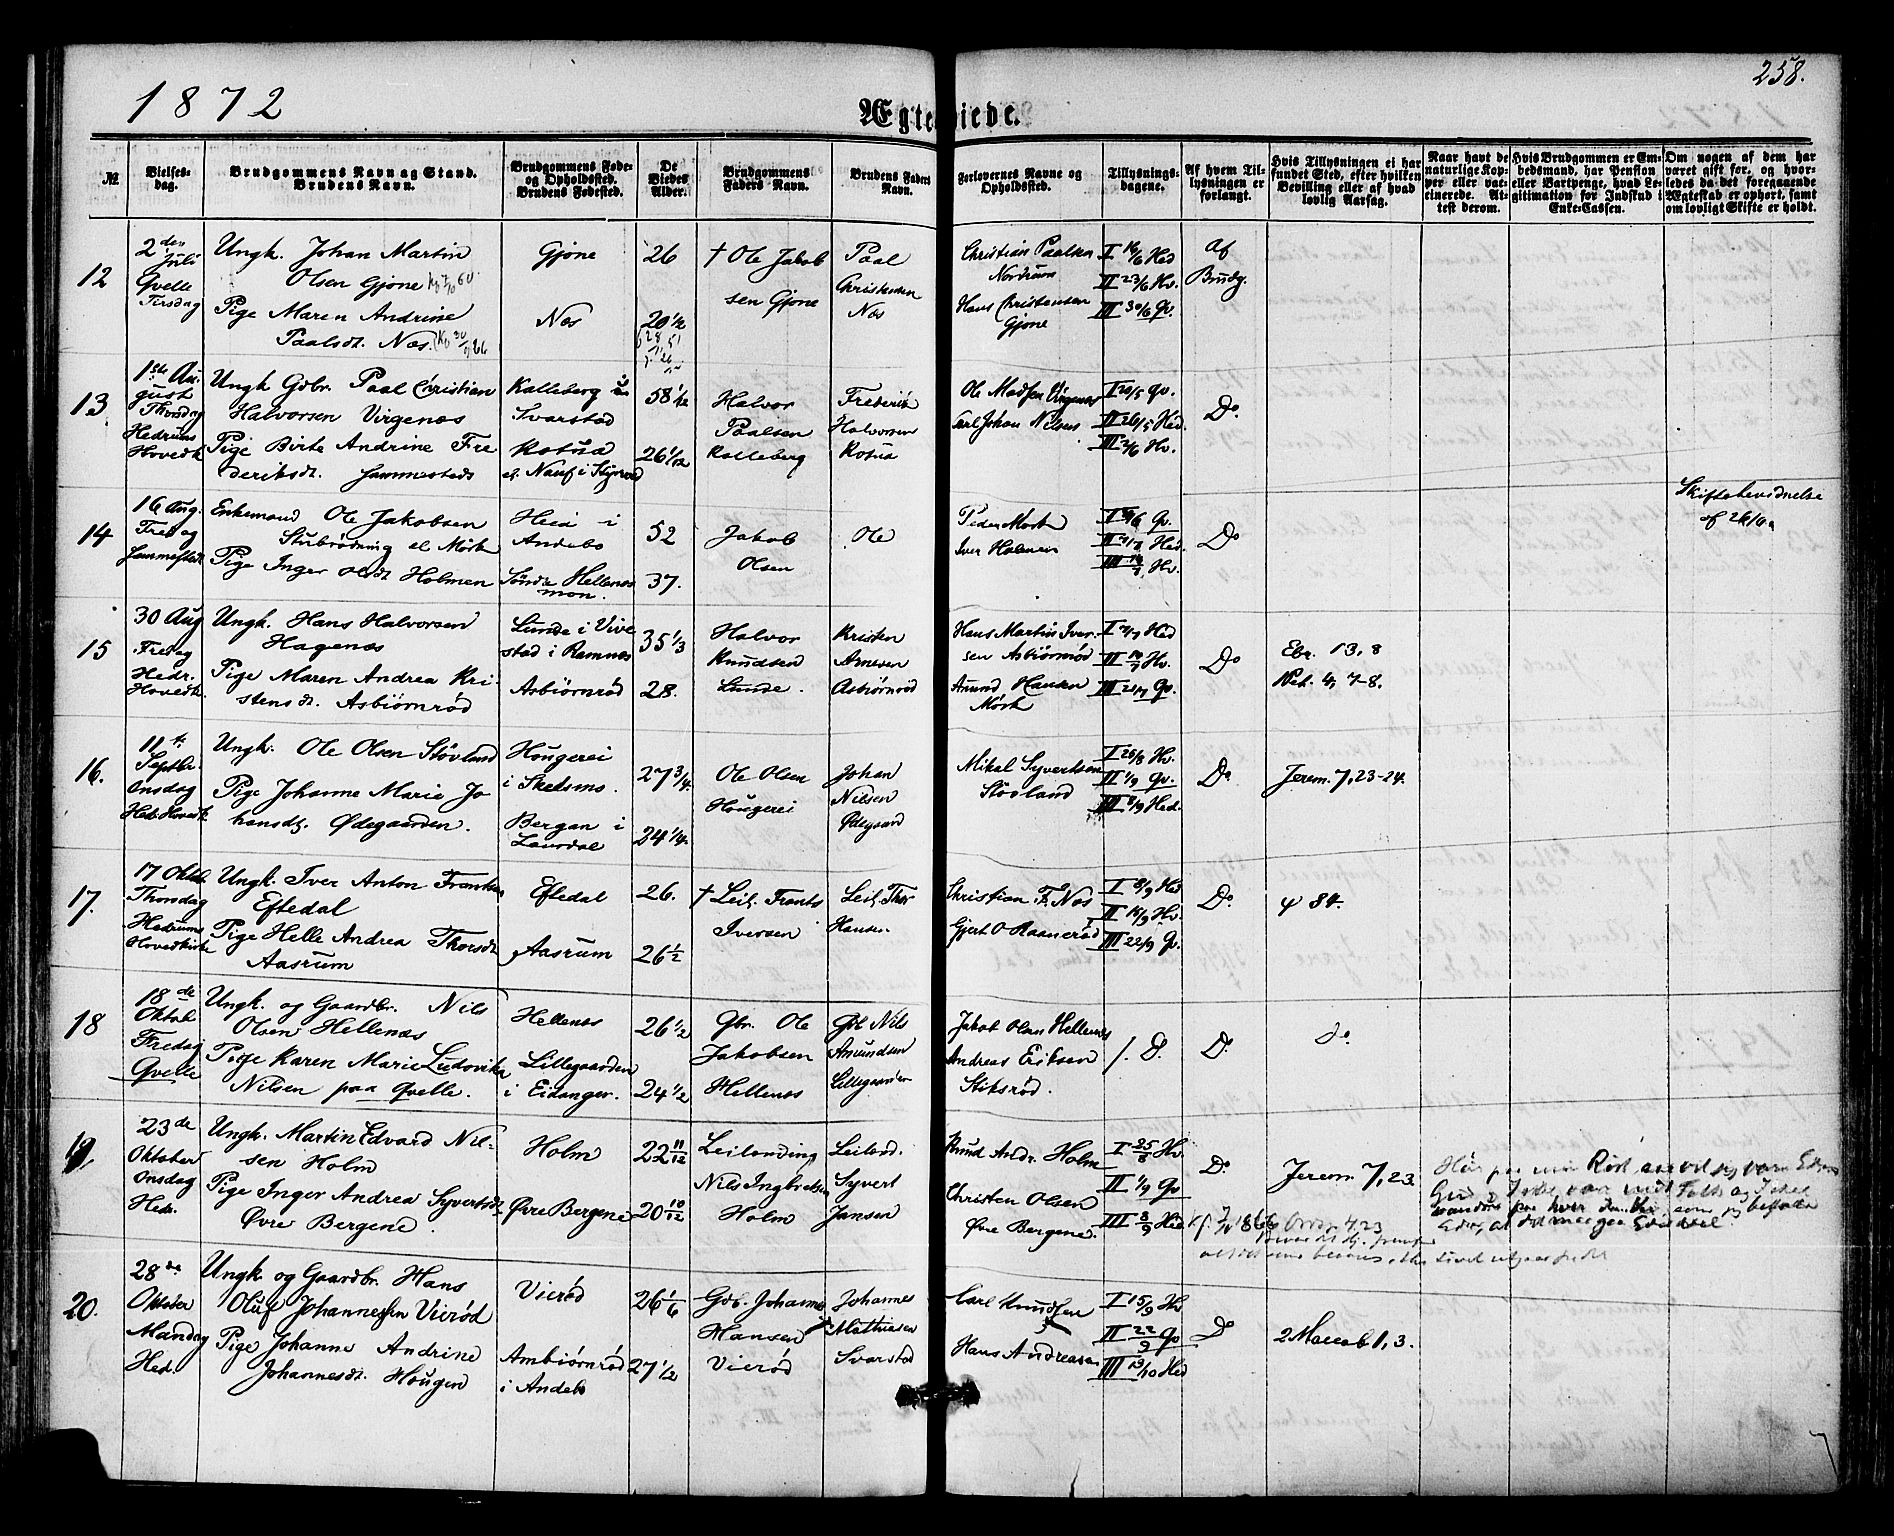 1872
Ægteviede.
258.
№
Vielses-
dag.
Brudgommens Navn og Stand.
Brudens Navn.
Brudgommens Føde-
og Opholdssted.
Brudens Fødested.
De
Viedes
Alder.
Brudgommens
Faders Navn.
Brudens Faders
Navn.
Forlovernes Navne og
Opholdssted.
Tillysnings-
dagene.
Af hvem Til-
lysningen er
forlangt.
Hvis Tillysningen ei har
fundet Sted, efter hvilken
Bevilling eller af hvad
lovlig Aarsag.
Naar havt de
naturlige Kop-
per eller vac-
cinerede. At-
test derom.
Hvis Brudgommen er Em-
bedsmand, har Pension
eller Vartpenge, hvad Le-
gitimation for Indskud i
Enke-Cassen.
Om nogen af dem har
været gift før, og hvor-
ledes da det foregaaende
Ægteskab er ophørt, samt
om lovligt Skifte er holdt.
12
2den
Juli
Qvelle
Tirsdag
Ungk. Johan Martin
Olsen Gjone
Pige Maren Andrine
Paalsdt. Næs.
Gjone
Næs
26
20 1/2
† Ole Jakob
sen Gjone
Paal
Christensen
Næs
Christian Paalsen
Nordrum
Hans Christensen
Gjone
I 16/6 Hed
II 23/6 Hv.
III 30/6 Qv.
Af
Brudg.
13
1ste Au.
gust
Thorsdag
Hedrums
Hovedk.
Ungk. Gdbr. Paal Christian
Halvorsen Virgenæs
Pige Birte Andrine Fre
deriksdt. Hammersteds
Kalleberg i
Svarstad
Kotua
58 1/2
26 1/12
Halvor
Paalsen
Kalleberg
Frederik
Halvorsen
Kotua
Ole Madsen Virgenæs
Carl Johan Nilsens
I 20/5 Qv.
II 26/5 Hed.
III 2/6 Hv.
Do
14
16 Aug.
Fredag
Enkemand Ole Jakobsen
Stubrødning el. Mørk
Pige Inger Olsdt Holmen
Heia i
Andebo
Søndre Hellenæs
mon.
52
37.
Jakob
Olsen
Ole
Peder Mørk
Iver Holmen
Do
Skiftebevidnelse
15
30 Aug
Fredag
Hedr.
Hovedk.
Ungk. Hans Halvorsen
Hagenæs
Pige Maren Andrea Kri-
stensdt. Asbiørnrød
Lunde i Vive
stad i Ramnæs
Asbiørnrød
35 1/3
28.
Halvor
Knudsen
Lunde.
Kristen
Arnesen
Asbiørnrød
Hans Martin Iver-
sen Asbiørnrød
Amund Hansen
Mørk
Do
Ebr. 13, 8
Pet. 4, 7-8.
16.
11te
Septbr.
Onsdag
Hed. Hovedk.
Ungk. Ole Olsen Støvland
Pige Johanne Maria Jo
hansdt. Ødegaarden.
Hougerei
i Skedsmo.
Bergan i
Laurdal
27 3/4.
24 1/4.
Ole Olsen
Hougerei
Johan
Nilsen
Ødegaard
Mikal Syvertsen
Støvland
I 25/8 Hv.
II 1/9 Qv.
III 8/9 Hed.
Do
Jerem. 7, 23-24.
17.
17 Oktbr.
Thorsdag
Hedrums
Hovedkirke
Ungk. Iver Anton Frantsen
Eftedal
Pige Helle Andrea Thorsdt.
Aasrum
Eftedal
Aasrum
26.
26 1/2
† Leil. Frants
Iversen
Leil. Thor
Hansen
Christian F. Næs
Gjert O Raanerød
I 8/9 Hed
II 15/9 Hv.
III 22/9 Qv.
Do
ψ 84.
18
18de
Oktob
Fredag
Qvelle
Ungk. og Gaardbr. Nils
Olsen Hellenæs
Pige Karen Marie Ludovika
Nilsen paa Qvelle.
Hellenæs
Lillegaarden
i Eidanger.
26 1/2
24 1/2
Gbr. Ole
Jakobsen
Hellenæs
Gbr. Nils
Amundsen
Lillegaarden
Jakob Olsen Hellenæs
Andreas Eriksen
Stiksrød.
Do
Do
19,
23de
Oktober
Onsdag
Hedr.
Ungk. Martin Edvard Nil-
sen Holm
Pige Inger Andrea Syvertsdt.
Øvre Bergene.
Holm
Øvre Bergene
22 11/12
20 10/12
Leilænding
Nils Ingbretsen
Holm
Leilænd.
Syvert
Jansen
Knud Andr. Holm
Christen Olsen
Øvre Bergene.
I 25/8 Hv.
II 1/9 Qv
III 8/9 Hed
Do
Jerem. 7, 23.
20.
28de
Oktober
Mandag
Hed.
Ungk og Gaardbr. Hans
Oluf Johannesen Vierød
Pige Johanne Andrine
Johannesdt. Hougen
Vierød
Ambiørnrød
i Andebo
26 1/6
27 1/2
Gdb. Johannes
Hansen
Vierød
Johannes
Mathiasen
Svarstad
Carl Knudsen
Hans Andreasen
I 15/9 Hv
II 22/9 Qv
III 13/10 Hed
Do
2 Maccab. 1, 3.